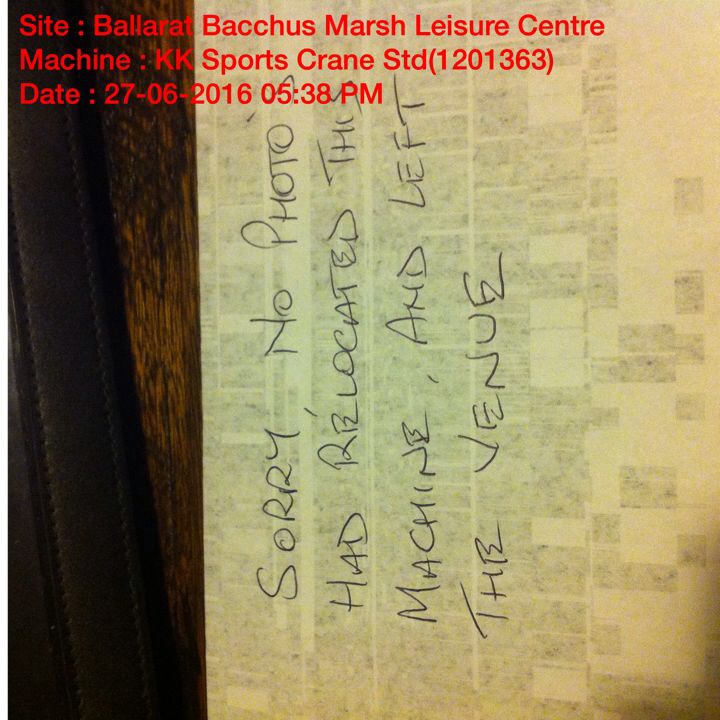 Site : Ballarat Bacchus Marsh Leisure Centre
Machine : KK Sports Crane Std(1201363)
Date : 27-06-2016 05:38 PM
SORRY NO PHOTO'S
HAD RELOCATED THIS
MACHINE, AND LEFT
THE VENUE